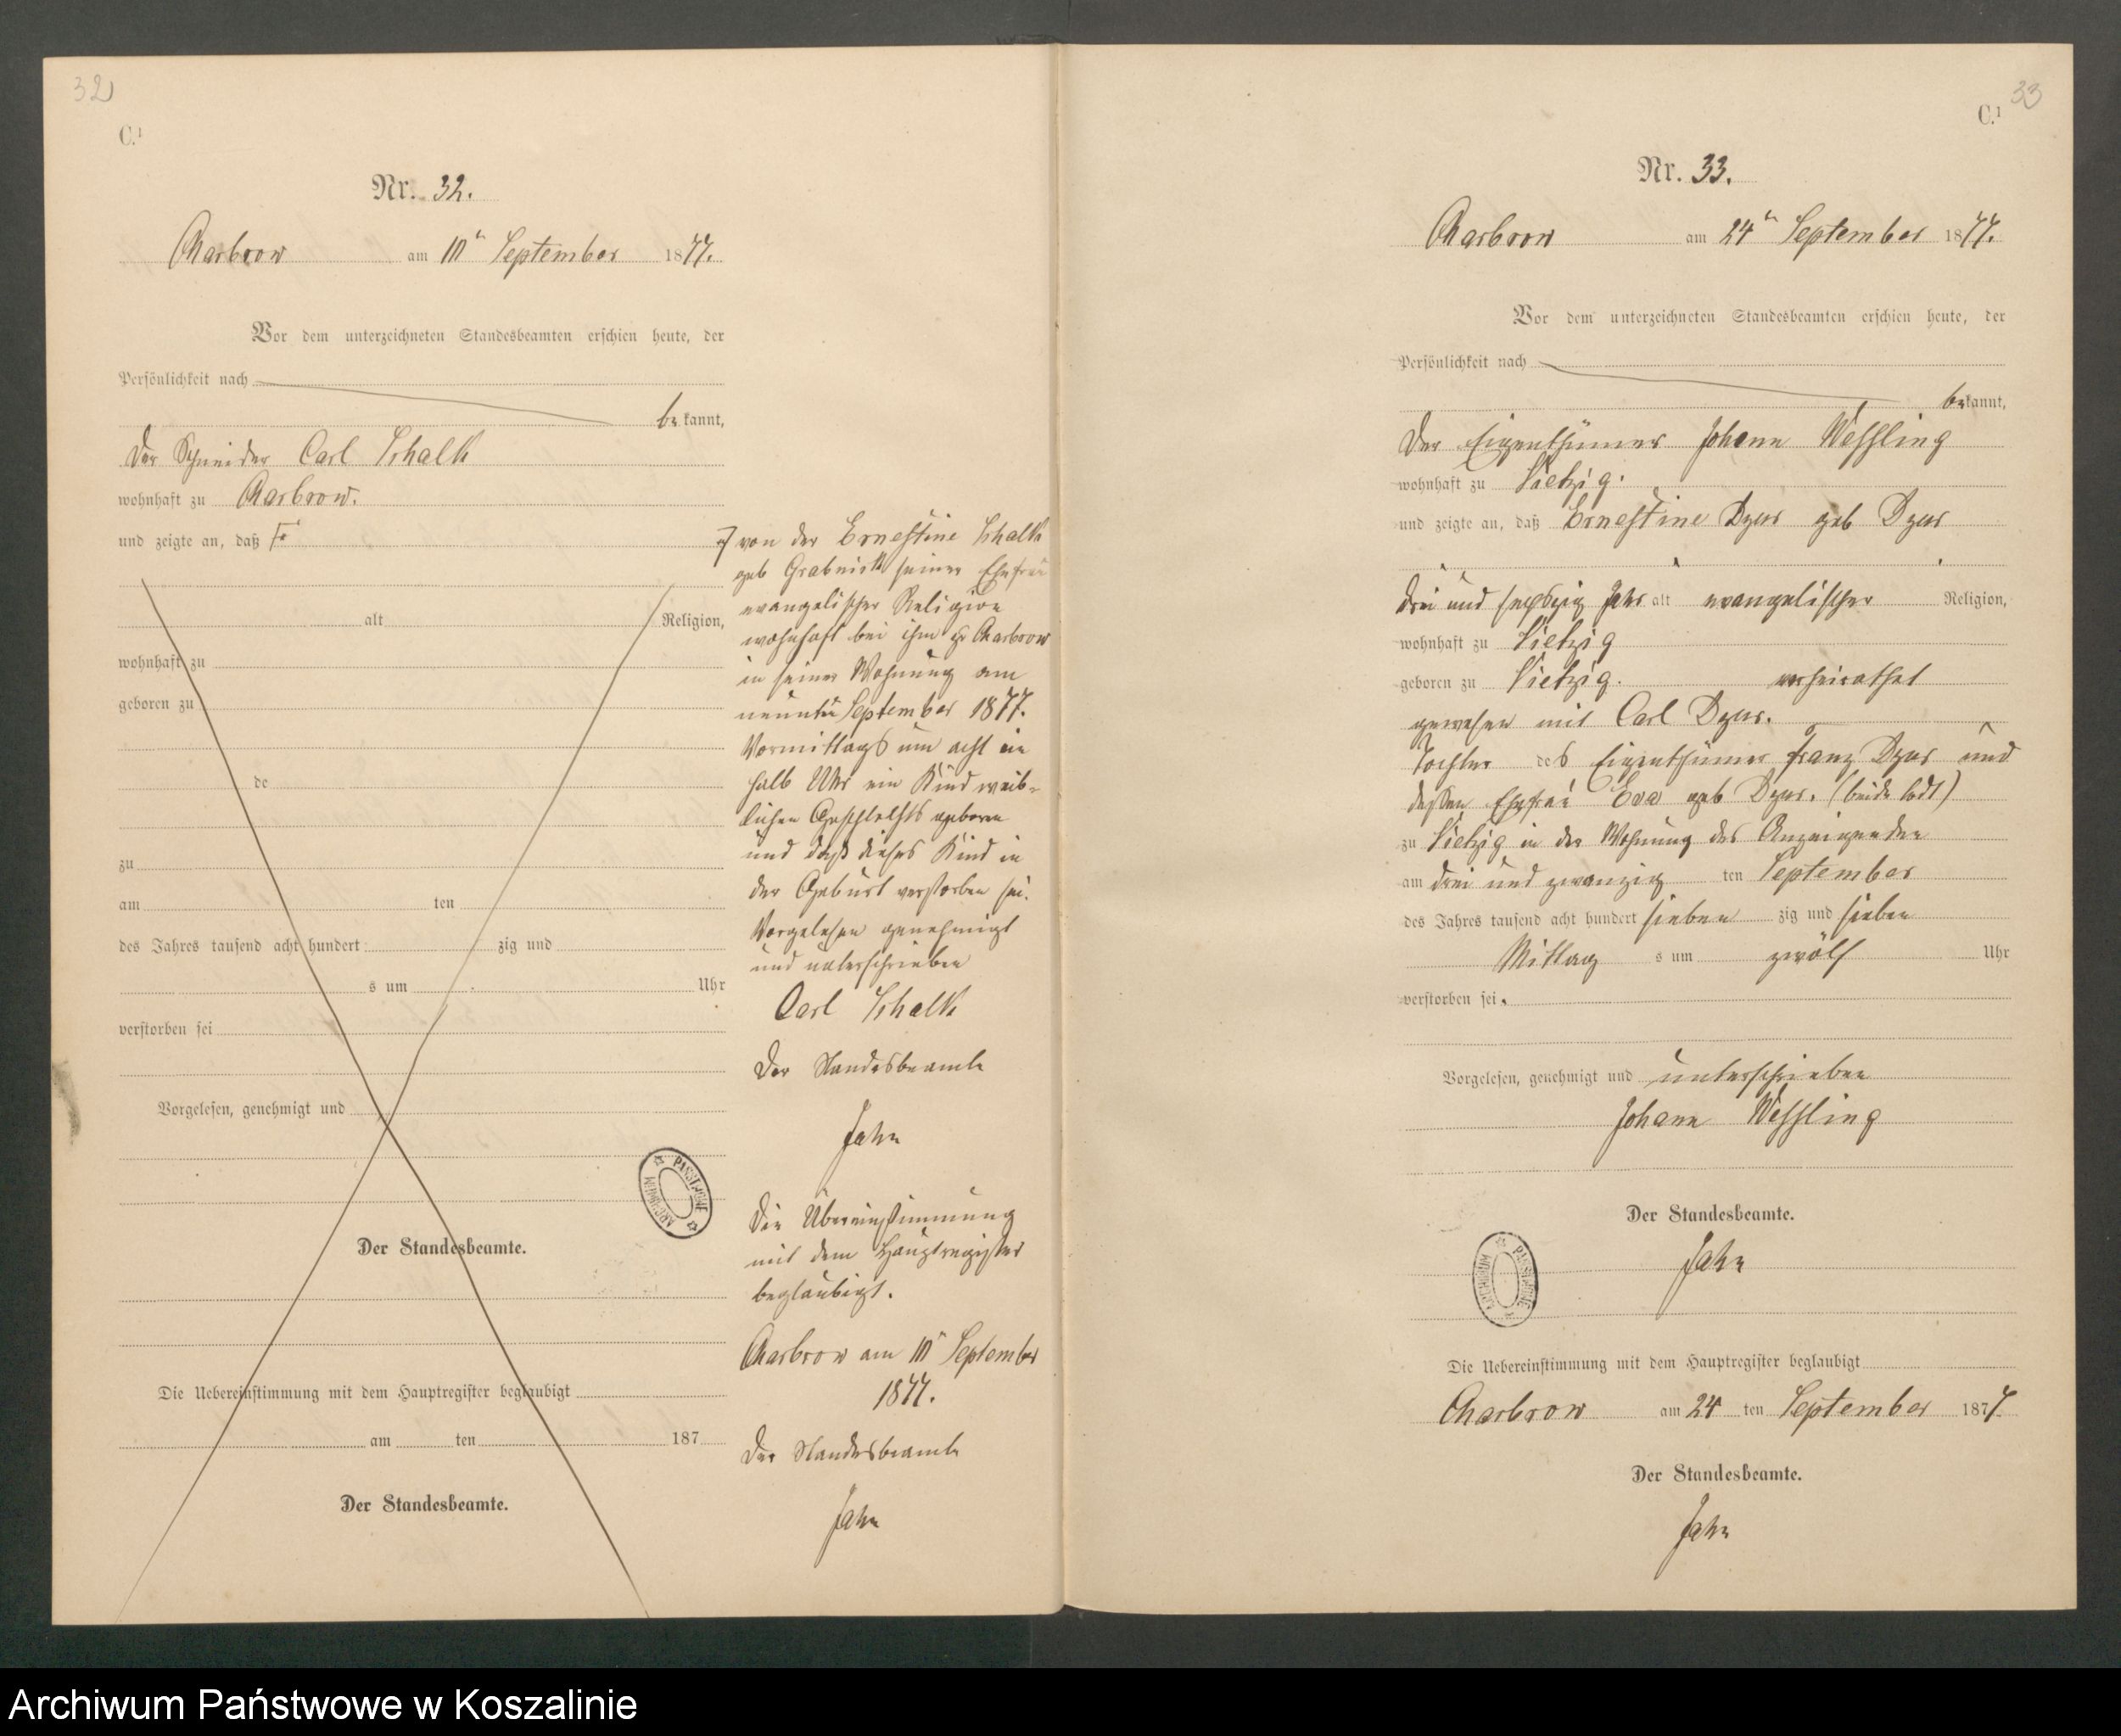 32
C.¹
Nr. 32.
Charbrow am 10ᵗ September 1877.
Vor dem unterzeichneten Standesbeamten erschien heute, der
Persönlichkeit nach
bekannt,
der Schneider Carl Schalk
wohnhaft zu Charbrow.
und zeigte an, daß
alt Religion,
wohnhaft zu
geboren zu
de
zu
am ten
des Jahres tausend acht hundert zig und
s um Uhr
verstorben sei
Vorgelesen, genehmigt und
Der Standesbeamte.
Die Uebereinstimmung mit dem Hauptregister beglaubigt
am ten 187
Der Standesbeamte.
von der Ernestine Schalk
geb seiner Ehefrau
evangelischer Religion
wohnhaft bei ihm zu Charbrow
in seiner Wohnung am
neunten September 1877.
Vormittags um acht ein
halb Uhr ein Kind weib-
lichen Geschlechts geboren
und daß dieses Kind in
der Geburt verstorben sei.
Vorgelesen genehmigt
und unterschrieben
Carl Schalk
Der Standesbeamte
Jahn
Die Übereinstimmung
mit dem Hauptregister
beglaubigt.
Charbrow am 10ᵗ September
1877.
Der Standesbeamte
Jahn
ARCHIWUM PAŃSTWOWE
33
C.¹
Nr. 33.
Charbrow am 24ᵗ September 1877.
Vor dem unterzeichneten Standesbeamten erschien heute, der
Persönlichkeit nach
bekannt,
der Eigenthümer Johann Wessling
wohnhaft zu Vietzig.
und zeigte an, daß Ernestine Dzus geb Dzus
drei und sechszig Jahr alt evangelischer Religion,
wohnhaft zu Vietzig
geboren zu Vietzig. verheirathet
gewesen mit Carl Dzus.
Tochter des Eigenthümer Franz Dzus und
dessen Ehefrau Eva geb Dzus. (beide todt)
zu Vietzig in der Wohnung des Anzeigenden
am drei und zwanzig ten September
des Jahres tausend acht hundert sieben zig und sieben
Mittag s um zwölf Uhr
verstorben sei.
Vorgelesen, genehmigt und unterschrieben
Johann Wessling
Der Standesbeamte.
Jahn
ARCHIWUM PAŃSTWOWE
Die Uebereinstimmung mit dem Hauptregister beglaubigt
Charbrow am 24 ten September 1877
Der Standesbeamte.
Jahn
Archiwum Państwowe w Koszalinie